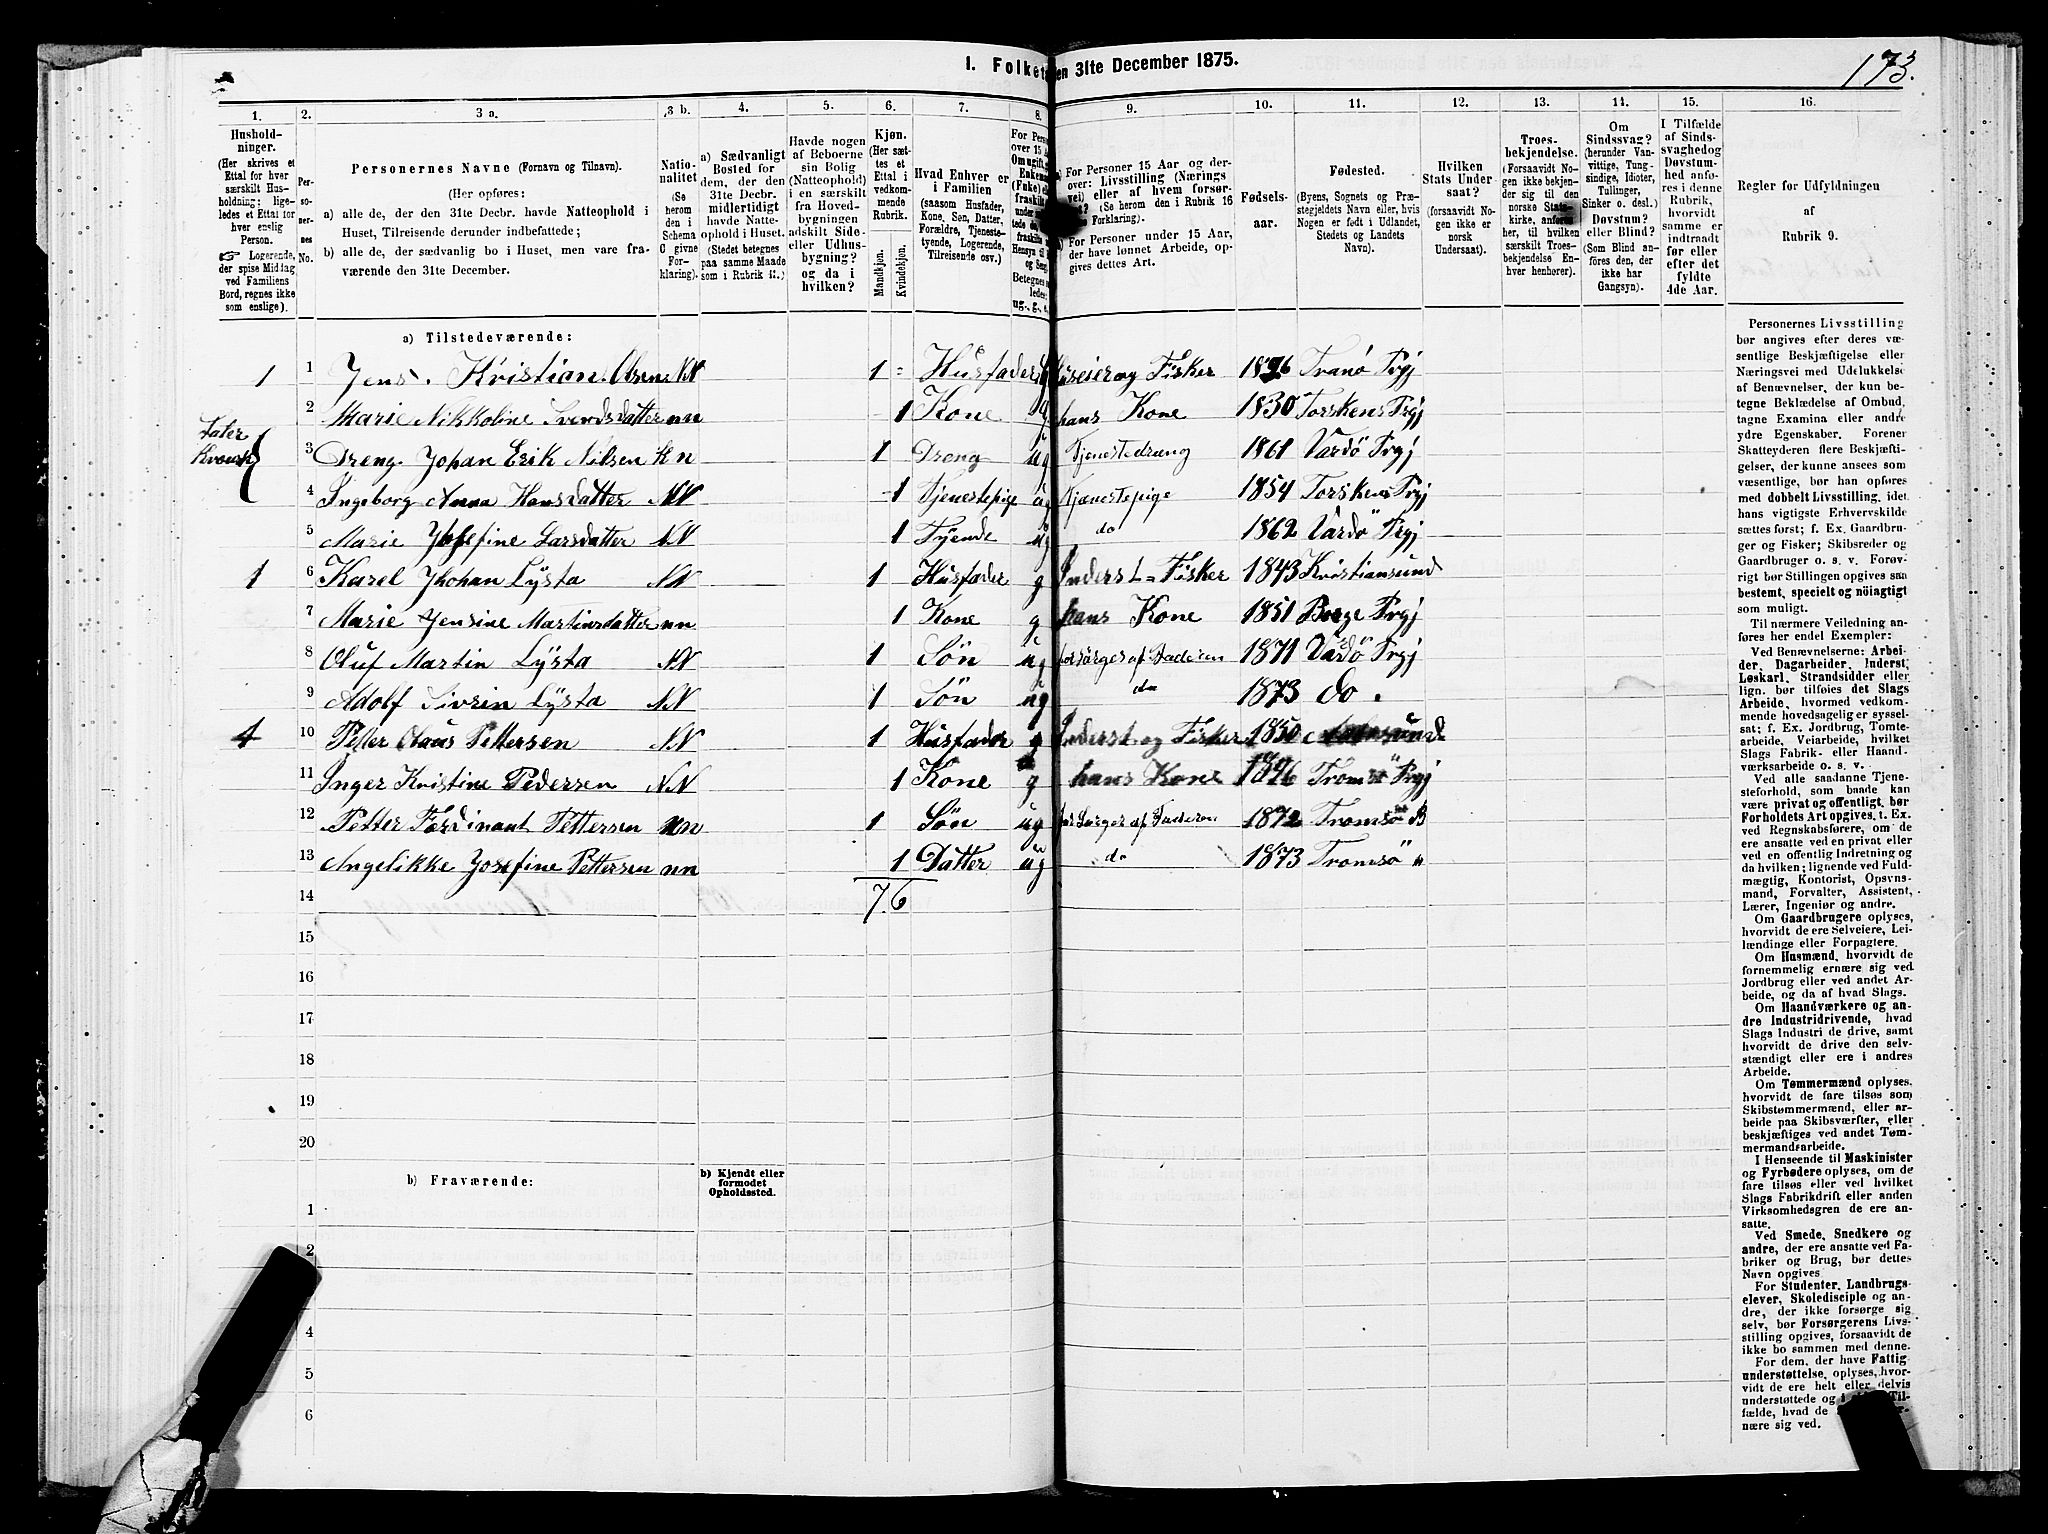 I. Folket
en 31te December 1875.
173.
1. 2. 3 a. 3 b. 4. 5. 6. 7. 8. 9. 10. 11. 12. 13. 14. 15. 16.
Hushold-
ninger.
(Her skrives et
Ettal for hver
særskilt Hus-
holdning; lige-
ledes et Ettal for
hver enslig
Person.
☞ Logerende,
der spise Middag
ved Familiens
Bord, regnes ikke
som enslige).
Per-
so-
ner-
nes
No.
Personernes Navne (Fornavn og Tilnavn).
(Her opføres:
a) alle de, der den 31te Decbr. havde Natteophold i
Huset, Tilreisende derunder indbefattede;
b) alle de, der sædvanlig bo i Huset, men vare fra-
værende den 31te December.
Natio-
nalitet
(Se
herom
den i
Schema
C givne
For-
klaring).
a) Sædvanligt
Bosted for
dem, der den
31te Decbr.
midlertidigt
havde Natte-
ophold i Huset.
(Stedet betegnes
paa samme Maade
som i Rubrik 11.)
Havde nogen
af Beboerne
sin Bolig
(Natteophold)
i en særskilt
fra Hoved-
bygningen
adskilt Side-
eller Udhus-
bygning?
og da i
hvilken?
Kjøn.
(Her sæt-
tes et
Ettal i
vedkom-
mende
Rubrik.
Mandkjøn.
Kvindekjøn.
Hvad Enhver er
i Familien
(saasom Husfader,
Kone, Søn, Datter,
Forældre, Tjeneste-
tyende, Logerende,
Tilreisende osv.)
For Pers
over 15 A
Om ugift,
Enkem
(Fuke) el
fraskil
Hensyn til
og Seng.
Betegnes
ledes:
ug., g., e.
For Personer 15 Aar og der-
over: Livsstilling (Nærings
vei) eller af hvem forsør-
get? (Se herom den i Rubrik 16
Forklaring).
b) For Personer under 15 Aar,
der have lønnet Arbeide, op-
gives dettes Art.
Fødsels-
aar.
Fødested.
(Byens, Sognets og Præ-
stegjeldets Navn eller, hvis
Nogen er født i Udlandet,
Stedets og Landets
Navn).
Hvilken
Stats Under
saat?
(forsaavidt No-
gen ikke er
norsk
Undersaat).
Troes-
bekjendelse.
(Forsaavidt No-
gen ikke bekjen-
der sig til den
norske Stats-
kirke, anføres
her, til hvilken
særskilt Troes-
bekjendelse En-
hver henhører).
Om
Sindssvag?
(herunder Van-
vittige, Tung-
sindige, Idioter,
Tullinger,
Sinker o. desl.)
Døvstum?
eller Blind?
(Som Blind an-
føres den, der
ikke har
Gangsyn).
I Tilfælde
af Sinds-
svaghed og
Døvstum-
hed anfø-
res i denne
Rubrik,
hvorvidt
samme er
indtraadt
før eller
efter det
fyldte
4de Aar.
Regler for Udfyldningen
af
Rubrik 9.
a) Tilstedeværende:
1 1 Jens. Kristian Olsen NN 1 = Husfader Fisker 1826 Tranö Prgj
2 Marie Nikkoline Svendsdatter nn 1 Kone g hans Kone 1830 Torskens Prgj
Taler
Kvænsk
3 Dreng. Johan Erik Nilsen Kn 1 Dreng ug Tjenestedreng 1861 Vardö Prgj
4 Ingeborg Anna Hansdatter NN 1 Tjenestepige ug Tjenestepige 1854 Torskens Prgj
5 Marie Josefine Larsdatter NN 1 Tyende ug do 1862 Vardö Prgj
1 6 Karel Jhohan Lysta NN 1 Husfader g Inderst = Fisker 1843 Kristiansund
7 Marie Jensine Martinsdatter nn 1 Kone g hans Kone 1851 Borge Prgj
8 Oluf Martin Lysta NN 1 Søn ug forsörges af Faderen 1871 Vardö Prgj
9 Adolf Sivrin Lysta NN 1 Søn ug do 1873 do.
1 10 Peter Olaus Pettersen NN 1 Husfader g Inderst og Fisker 1850
11 Inger Kristine Pedersen NN 1 Kone g hans Kone 1846 Tromsö Prgj
12 Petter Ferdinant Pettersen nn 1 Søn ug forsörges af Faderen 1872 Tromsö B
13 Angelikke Josefine Pettersen nn 1 Datter ug do 1873 Tromsö "
14 7. 6
15
16
17
18
19
20
b) Fraværende:
b) Kjendt eller
formodet
Opholdssted.
1
2
3
4
5
6
Personernes Livsstilling
bør angives efter deres væ-
sentlige Beskjæftigelse eller
Næringsvei med Udelukkelse
af Benævnelser, der kun be-
tegne Beklædelse af Ombud,
tagne Examina eller andre
ydre Egenskaber. Forener
Skatteyderen flere Beskjæfti-
gelser, der kunne ansees som
væsentlige, bør han opføres
med dobbelt Livsstilling, idet
hans vigtigste Erhvervskilde
sættes først; f. Ex. Gaardbru-
ger og Fisker; Skibsreder og
Gaardbruger o. s. v. Forøv-
rigt bør Stillingen opgives saa
bestemt, specielt og nöiagtigt
som muligt.
Til nærmere Veiledning an-
føres her endel Exempler:
Ved Benævnelserne: Arbei-
der, Dagarbeider, Inderst,
Løskarl, Strandsidder eller
lign. bør tilføies det Slags
Arbeide, hvormed vedkom-
mende hovedsagelig er syssel-
sat; f. Ex. Jordbrug, Tomte-
arbeide, Veiarbeide, hvilket
Slags Fabrik- eller Haand-
værksarbeide o. s. v.
Ved alle saadanne Tjene-
steforhold, som baade kan
være privat og offentligt, bør
Forholdets Art opgives, t. Ex.
ved Regnskabsførere, om de
ere ansatte ved en privat eller
ved en offentlig Indretning og
da hvilken; lignende ved Fuld-
mægtig, Kontorist, Opsyns-
mand, Forvalter, Assistent,
Lærer, Ingeniør og andre.
Om Gaardbrugere oplyses,
hvorvidt de ere Selveiere, Lei-
lændinge eller Forpagtere.
Om Husmænd, hvorvidt de
fornemmelig ernære sig ved
Jordbrug eller ved andet Ar-
beide, og da af hvad Slags.
Om Haandværkere og an-
dre Industridrivende, hvad
Slags Industri de drive, samt
hvorvidt de drive den selv-
stændigt eller ere i andres
Arbeide.
Om Tømmermænd oplyses,
hvorvidt de fare tilsøs som
Skibstømmermænd, eller ar-
beide paa Skibsværfter, eller
beskjæftiges ved andet Tøm-
mermandsarbeide.
I Henseende til Maskinister
og Fyrbødere oplyses, om de
fare tilsøs eller ved hvilket
Slags Fabrikdrift eller anden
Virksomhedsgren de ere an-
satte.
Ved Smede, Snedkere og
andre, der ere ansatte ved Fa-
briker og Brug, bør dettes
Navn opgives.
For Studenter, Landbrugs-
elever, Skoledisciple og an-
dre, der ikke forsørge sig
selv, bør Forsørgerens Livs-
stilling opgives, forsaavidt de
ikke bo sammen med denne.
For dem, der have Fattig-
understøttelse, oplyses, hvor-
vidt de ere helt eller delvis
understøttede og i Til-
fælde, hvad de
nære sig ved.